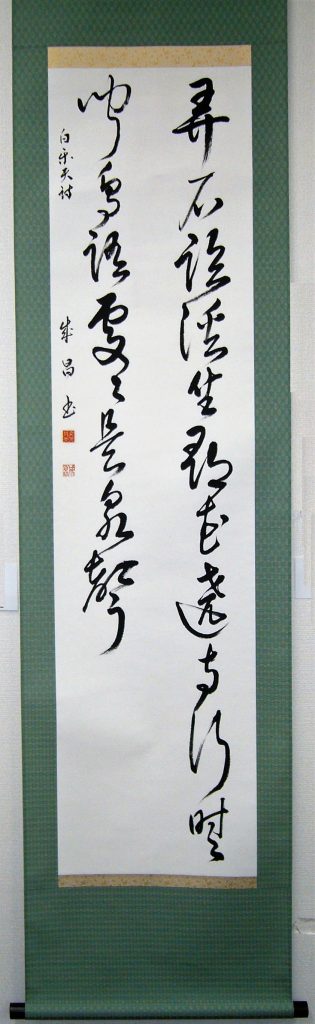 弄石臨溪坐尋花遶寺行時
聞鳥語處々是泉聲
白楽天詩
成昌书